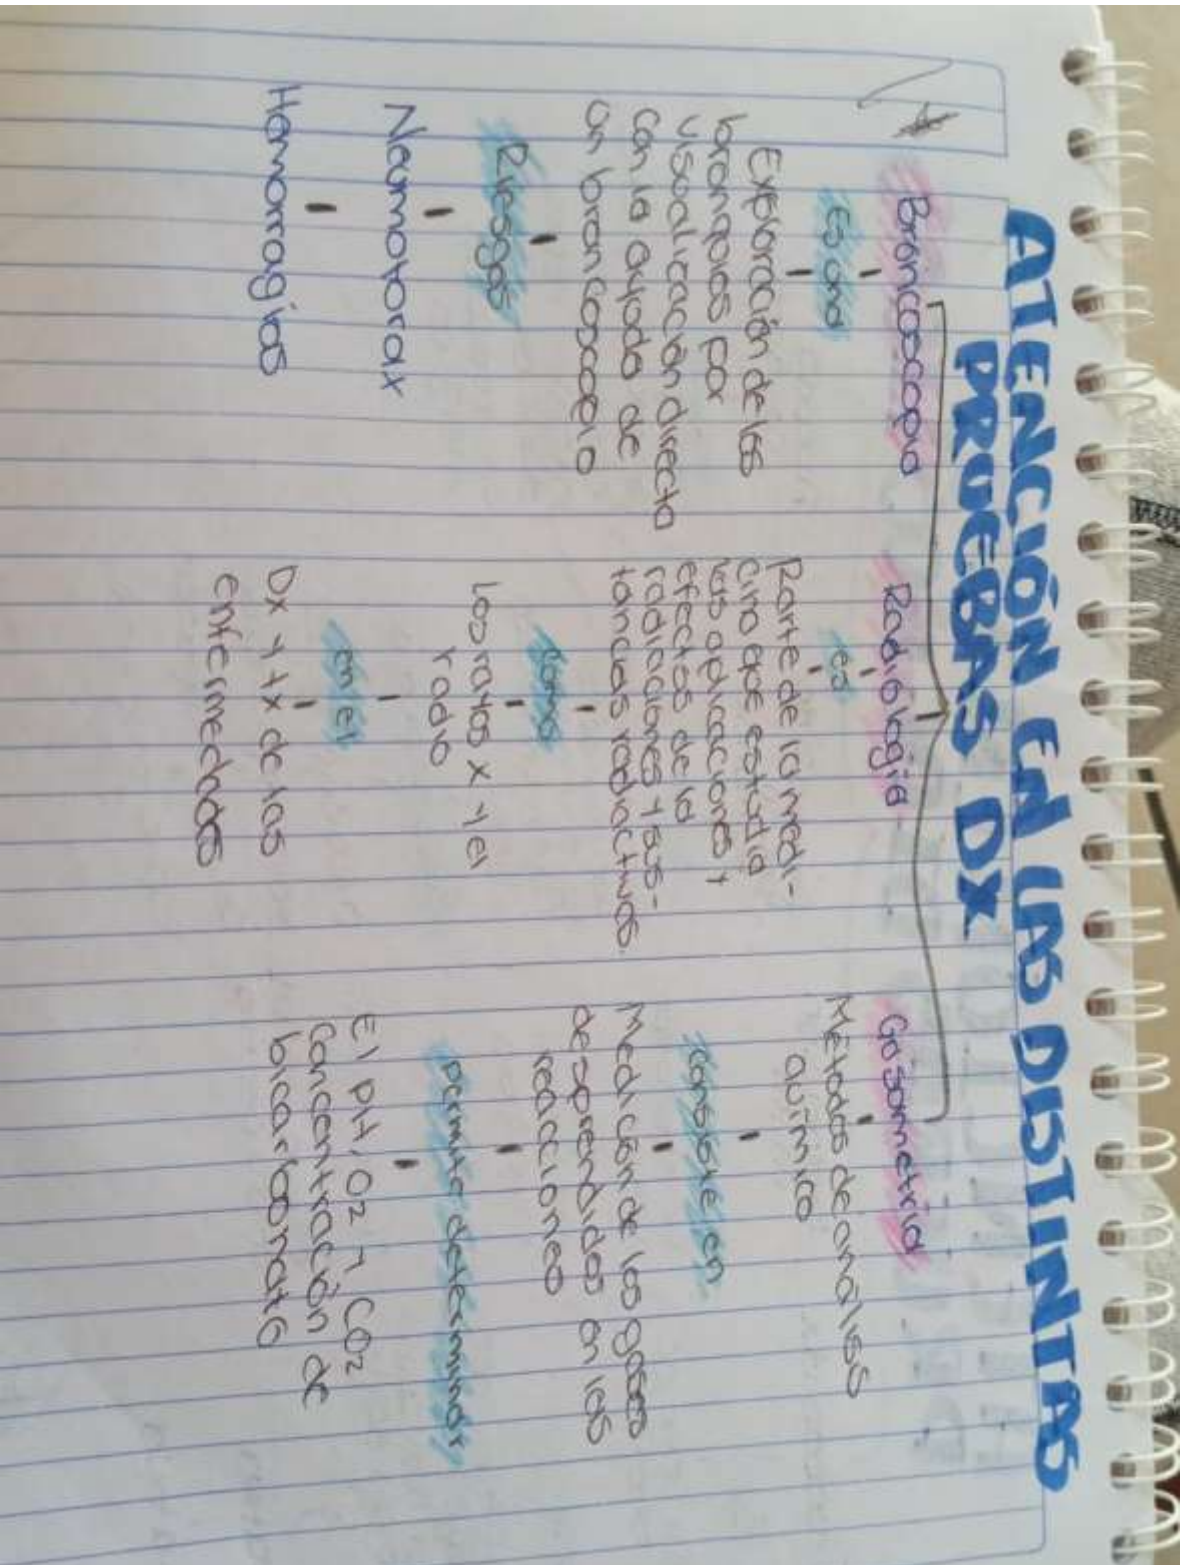 ATENCIÓN EN LAS DISTINTAS
PRUEBAS DX
Broncoscopia
Es una
Exploración de los
bronquios por
visualización directa
con la ayuda de
un broncoscopio
Riesgos
Neumotorax
Hemorragias
Radiología
es
Parte de la medi-
cina que estudia
las aplicaciones y
efectos de la
radiaciones y sus-
tancias radiactivas.
como
Los rayos x y el
radio
en el
Dx y tx de las
enfermedades
Gasometria
Métodos de analisis
químico
consiste en
Medición de los gases
desprendidos en las
reacciones
permite determinar
El pH, O2 y CO2
Concentración de
bicarbonato